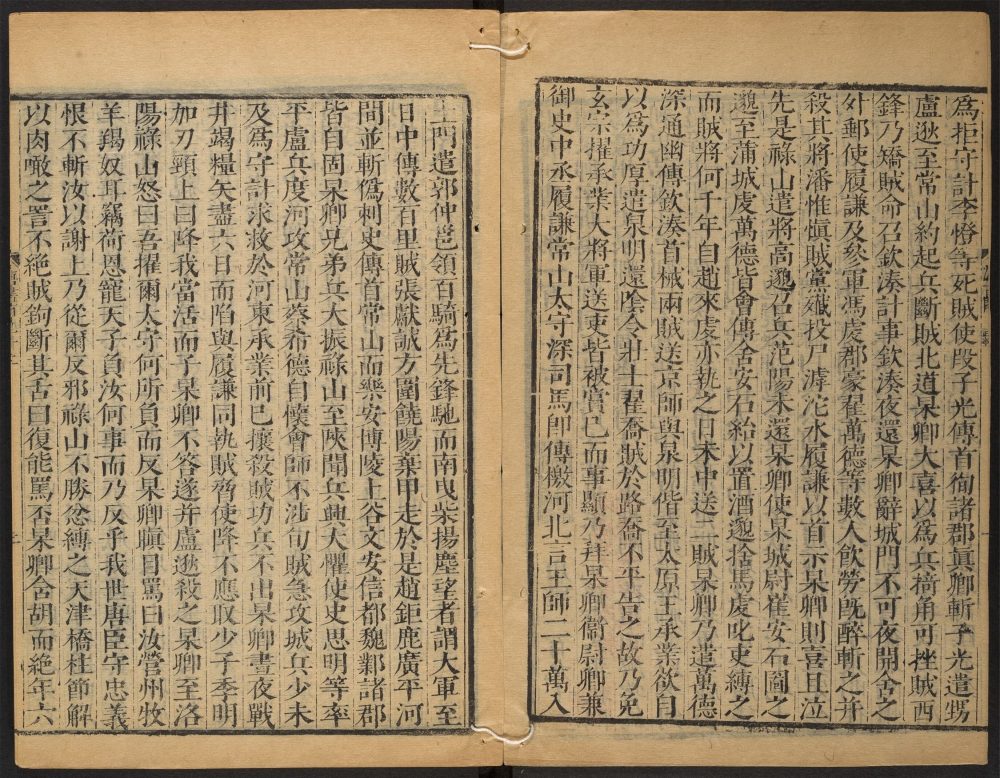 為拒守計李憕等死賊使段子光傳首徇諸郡眞卿斬子光遣甥
盧逖至常山約起兵斷賊北道杲卿大喜以爲兵掎角可挫賊西
鋒乃矯賊命召欽湊計事欽湊夜還杲卿辭城門不可夜開舍之
外郵使履謙及參軍馮虔郡豪翟萬德等數人飲勞旣醉斬之并
殺其將潘惟愼賊黨殲投尸滹沱水履謙以首示杲卿則喜且泣
先是祿山遣將高邈召兵范陽未還杲卿使杲城尉崔安石圖之
邈至蒲城虔萬德皆會傳舍安石紿以置酒邈捨馬虔叱吏縛之
而賊將何千年自趙來虔亦執之日未中送二賊杲卿乃遣萬德
深通幽傳欽湊首械兩賊送京師與泉明偕至太原王承業欲自
以爲功厚遣泉明還陰令壯士翟喬賊於路喬不平告之故乃免
玄宗擢承業大將軍送吏皆被賞已而事顯乃拜杲卿衞尉卿兼
御史中丞履謙常山太守深司馬卽傳檄河北言王師二十萬入
土門遣郭仲邕領百騎爲先鋒馳而南曳柴揚塵望者謂大軍至
日中傳數百里賊張獻誠方圍饒陽棄甲走於是趙鉅鹿廣平河
間並斬僞刺史傳首常山而樂安博陵上谷文安信都魏鄴諸郡
皆自固杲卿兄弟兵大振祿山至陝聞兵興大懼使史思明等率
平盧兵度河攻常山蔡希德自懷會師不涉旬賊急攻城兵少未
及爲守計求救於河東承業前已攘殺賊功兵不出杲卿晝夜戰
井竭糧矢盡六日而陷與履謙同執賊脅使降不應取少子季明
加刃頸上曰降我當活而子杲卿不答遂并盧逖殺之杲卿至洛
陽祿山怒曰吾擢爾太守何所負而反杲卿瞋目罵曰汝營州牧
羊羯奴耳竊荷恩寵天子負汝何事而乃反乎我世唐臣守忠義
恨不斬汝以謝上乃從爾反邪祿山不勝忿縛之天津橋柱節解
以肉噉之詈不絕賊鉤斷其舌曰復能罵否杲卿含胡而絕年六